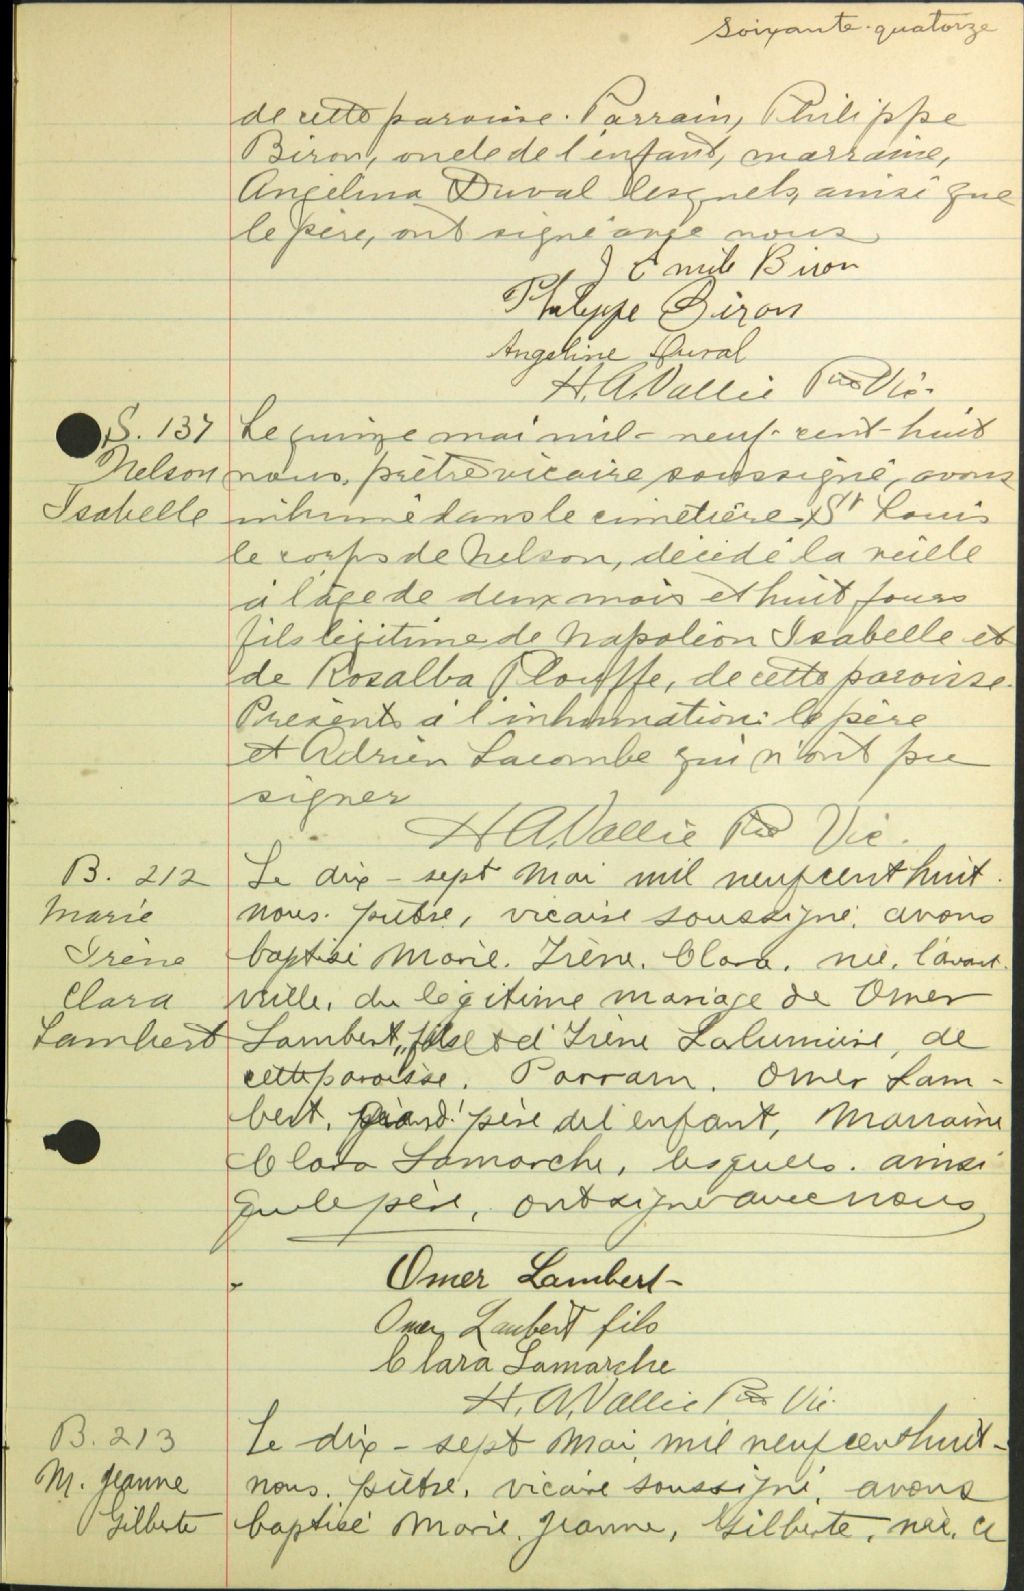 soixante-quatorze
de cette paroisse. Parrain, Philippe
Biron, oncle de l'enfant, marraine,
Angélina Duval lesquels, ainsi que
le père, ont signé avec nous
J Emile Biron
Philippe Biron
Angéline Duval
H. A. Vallée Ptre Vic.
S. 137
Nelson
Isabelle
Le quinze mai mil-neuf-cent-huit
nous, prêtre vicaire soussigné, avons
inhumé dans le cimetière St Louis
le corps de Nelson, décédé la veille
à l'âge de deux mois et huit jours
fils légitime de Napoléon Isabelle et
de Rosalba Plouffe, de cette paroisse.
Présents à l'inhumation: le père
et Adrien Lacombe qui n'ont pu
signer
H A. Vallée Ptre Vic.
B. 212
Marie
Irène
Clara
Lambert
Le dix-sept Mai mil neuf cent huit.
nous. prêtre, vicaire soussigné, avons
baptisé Marie. Irène. Clara. née, l'avant
veille, du légitime mariage de Omer
Lambert, fils et d'Irène Lalumière, de
cette paroisse. Parrain. Omer Lam-
bert, grand'père de l'enfant, Marraine
Clara Lamarche, lesquels. ainsi
que le père, ont signé avec nous
Omer Lambert
Omer Lambert fils
Clara Lamarche
H. A. Vallée Ptre Vic.
B. 213
M. Jeanne
Gilberte
Le dix-sept Mai mil neuf cent huit-
nous. prêtre. vicaire soussigné, avons
baptisé Marie. Jeanne, Gilberte, née, ce